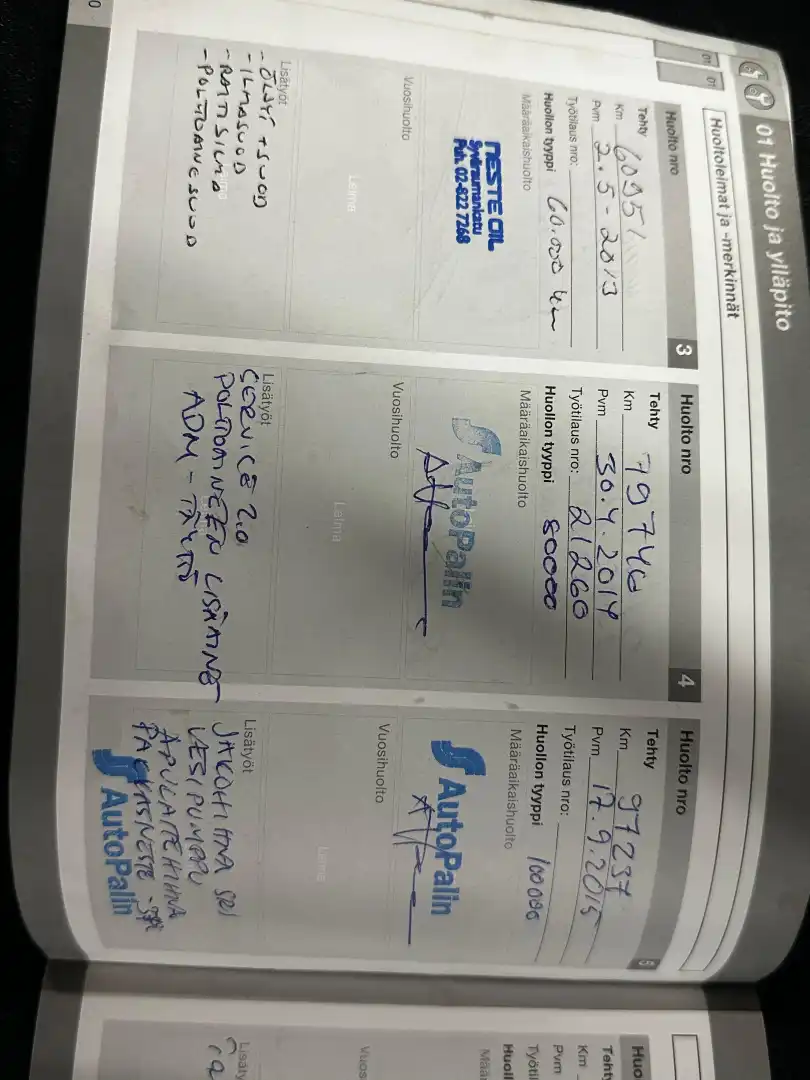 01 Huolto ja ylläpito
Huoltoleimat ja -merkinnät
01 01
Huolto nro 3
Tehty
Km 60951
Pvm 2.5-2013
Työtilaus nro:
Huollon tyyppi 60.000 km
Määräaikaishuolto
NESTE OIL
Pih. 02-822 7268
Vuosihuolto
Leima
Lisätyöt
- ÖLJYT + SUOD
- ILMASUOD
- RAITISILMA
- POLTTOAINESUOD
Huolto nro 4
Tehty
Km 79746
Pvm 30.4.2014
Työtilaus nro: 21260
Huollon tyyppi 80000
Määräaikaishuolto
AutoPalin
Vuosihuolto
Leima
Lisätyöt
SERVICE 2.0
POLTTOAINEEN LISÄAINE
ADM-TÄYTTÖ
Huolto nro 5
Tehty
Km 97237
Pvm 17.9.2015
Työtilaus nro:
Huollon tyyppi 100000
Määräaikaishuolto
AutoPalin
Vuosihuolto
Leima
Lisätyöt
JAKOHIHNA SRJ
VESIPUMPPU
APULAITEHIHNA
PAKKASNESTE
AutoPalin
Huo
Tehty
Km
Pvm
Työti
Huoll
Mää
Vuos
Lisäty